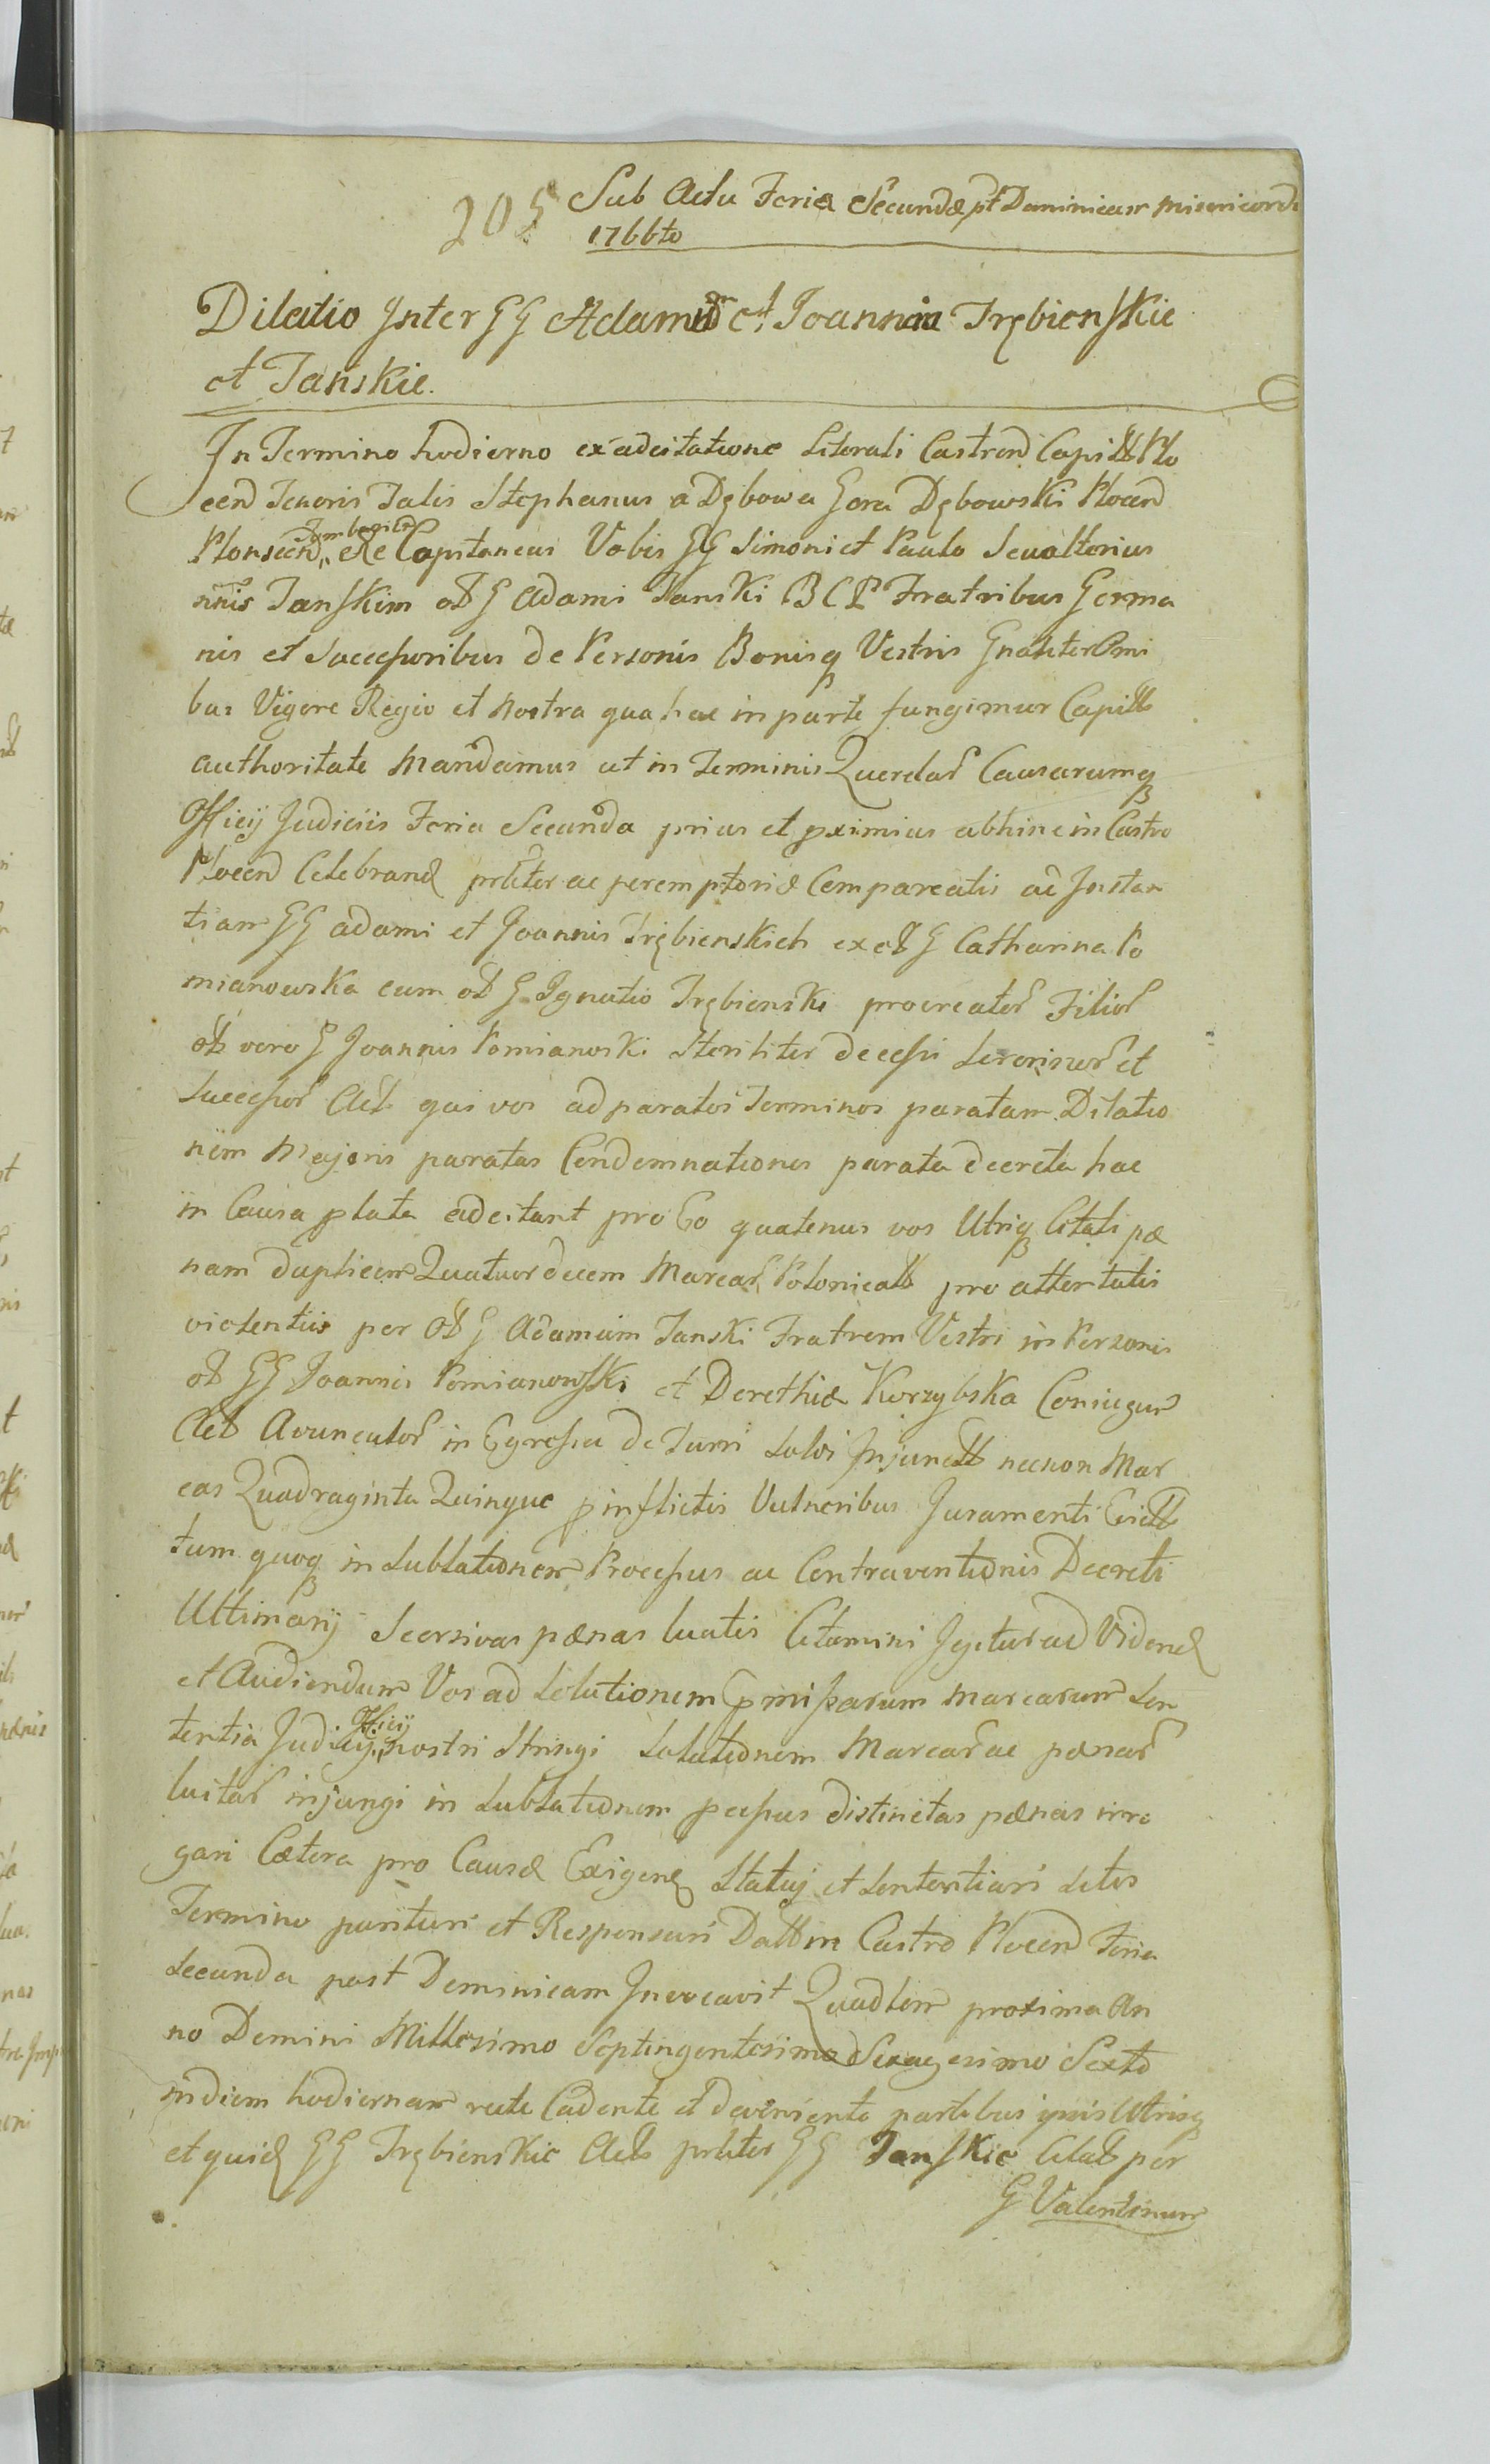 205 Sub Actu Feria Secunda pt Dominicam Misericord
1766to
Dilatio Inter GG Adamu et Joannem Trębienskie
et Janskie.
In Termino hodierno ex adcitatione Literali Castren Capitt Plo
cen Tenoris Talis Stephanus a Dębowa Gora Dębowski Plocen
Plonscen Zembecin etc Capitaneus Vobis GG Simoni et Paulo Seu alterius
nnis Janskim ol G Adami Janski B C P Fratribus Germa
nis et Successoribus de Personis Bonisq Vestris Gnaliter Omi
bus Vigore Regio et Nostra qua hac in parte fungimur Capitt
authoritate Mandamus ut in Terminis Querelar Causarumq
Officij Judiciis Feria Secunda prius et pximius abhinc in Castro
Plocen Celebran prliter ac peremptorie Compareatis ad Instan
tiam GG Adami et Joannis Trębienskich ex ol G Catharina Po
mianowska cum ol G Ignatio Trębienski procreator Filior
ol vero G Joannis Pomianoski Steriliter decessi Sororinor et
Successor Act qui vos ad paratos Terminos paratam Dilatio
nem Majoris paratas Condemnationes parata decreta hac
in Causa plata adcitant pro Eo quatenus vos Utriq Citati pæ
nam duplicem Quatuordecem Marcar Polonicall pro attentatis
violentiis per Ol G Adamum Janski Fratrem Vestri in Personis
ol GG Joannis Pomianowski et Dorethiæ Korzybska Coniugum
Act Avunculor in Egressu de Turri Solvi Injunctt necnon Mar
cas Quadraginta Quinque p inflictis Vulneribus Juramenti Evictt
tum quoq in Sublationem Processus ac Contraventionis Decreti
Ultimarij Seorsivas pænas luatis Citamini Igitur ad Viden
et Audiendum Vos ad Solutionem pmissarum marcarum Sen
tentia Judicij Officij nostri Stringi Solutionem Marcar ac pænar
luitar injungi in Sublationem pcessus distinctas pænas irro
gari Cætera pro Causæ Exigen Statuj et Sententiari Litis
Termino parituri et Responsuri Datt in Castro Plocen Feria
Secunda post Dominicam Invocavit Quadlem proxima An
no Domini Millesimo Septingentesimo Sexagesimo Sexto
in diem hodiernam recte Cadente et deveniente partibus ipsis Utrisq
et quid GG Trębienskie Act prliter GG Janskie Citat per
G Valentinum